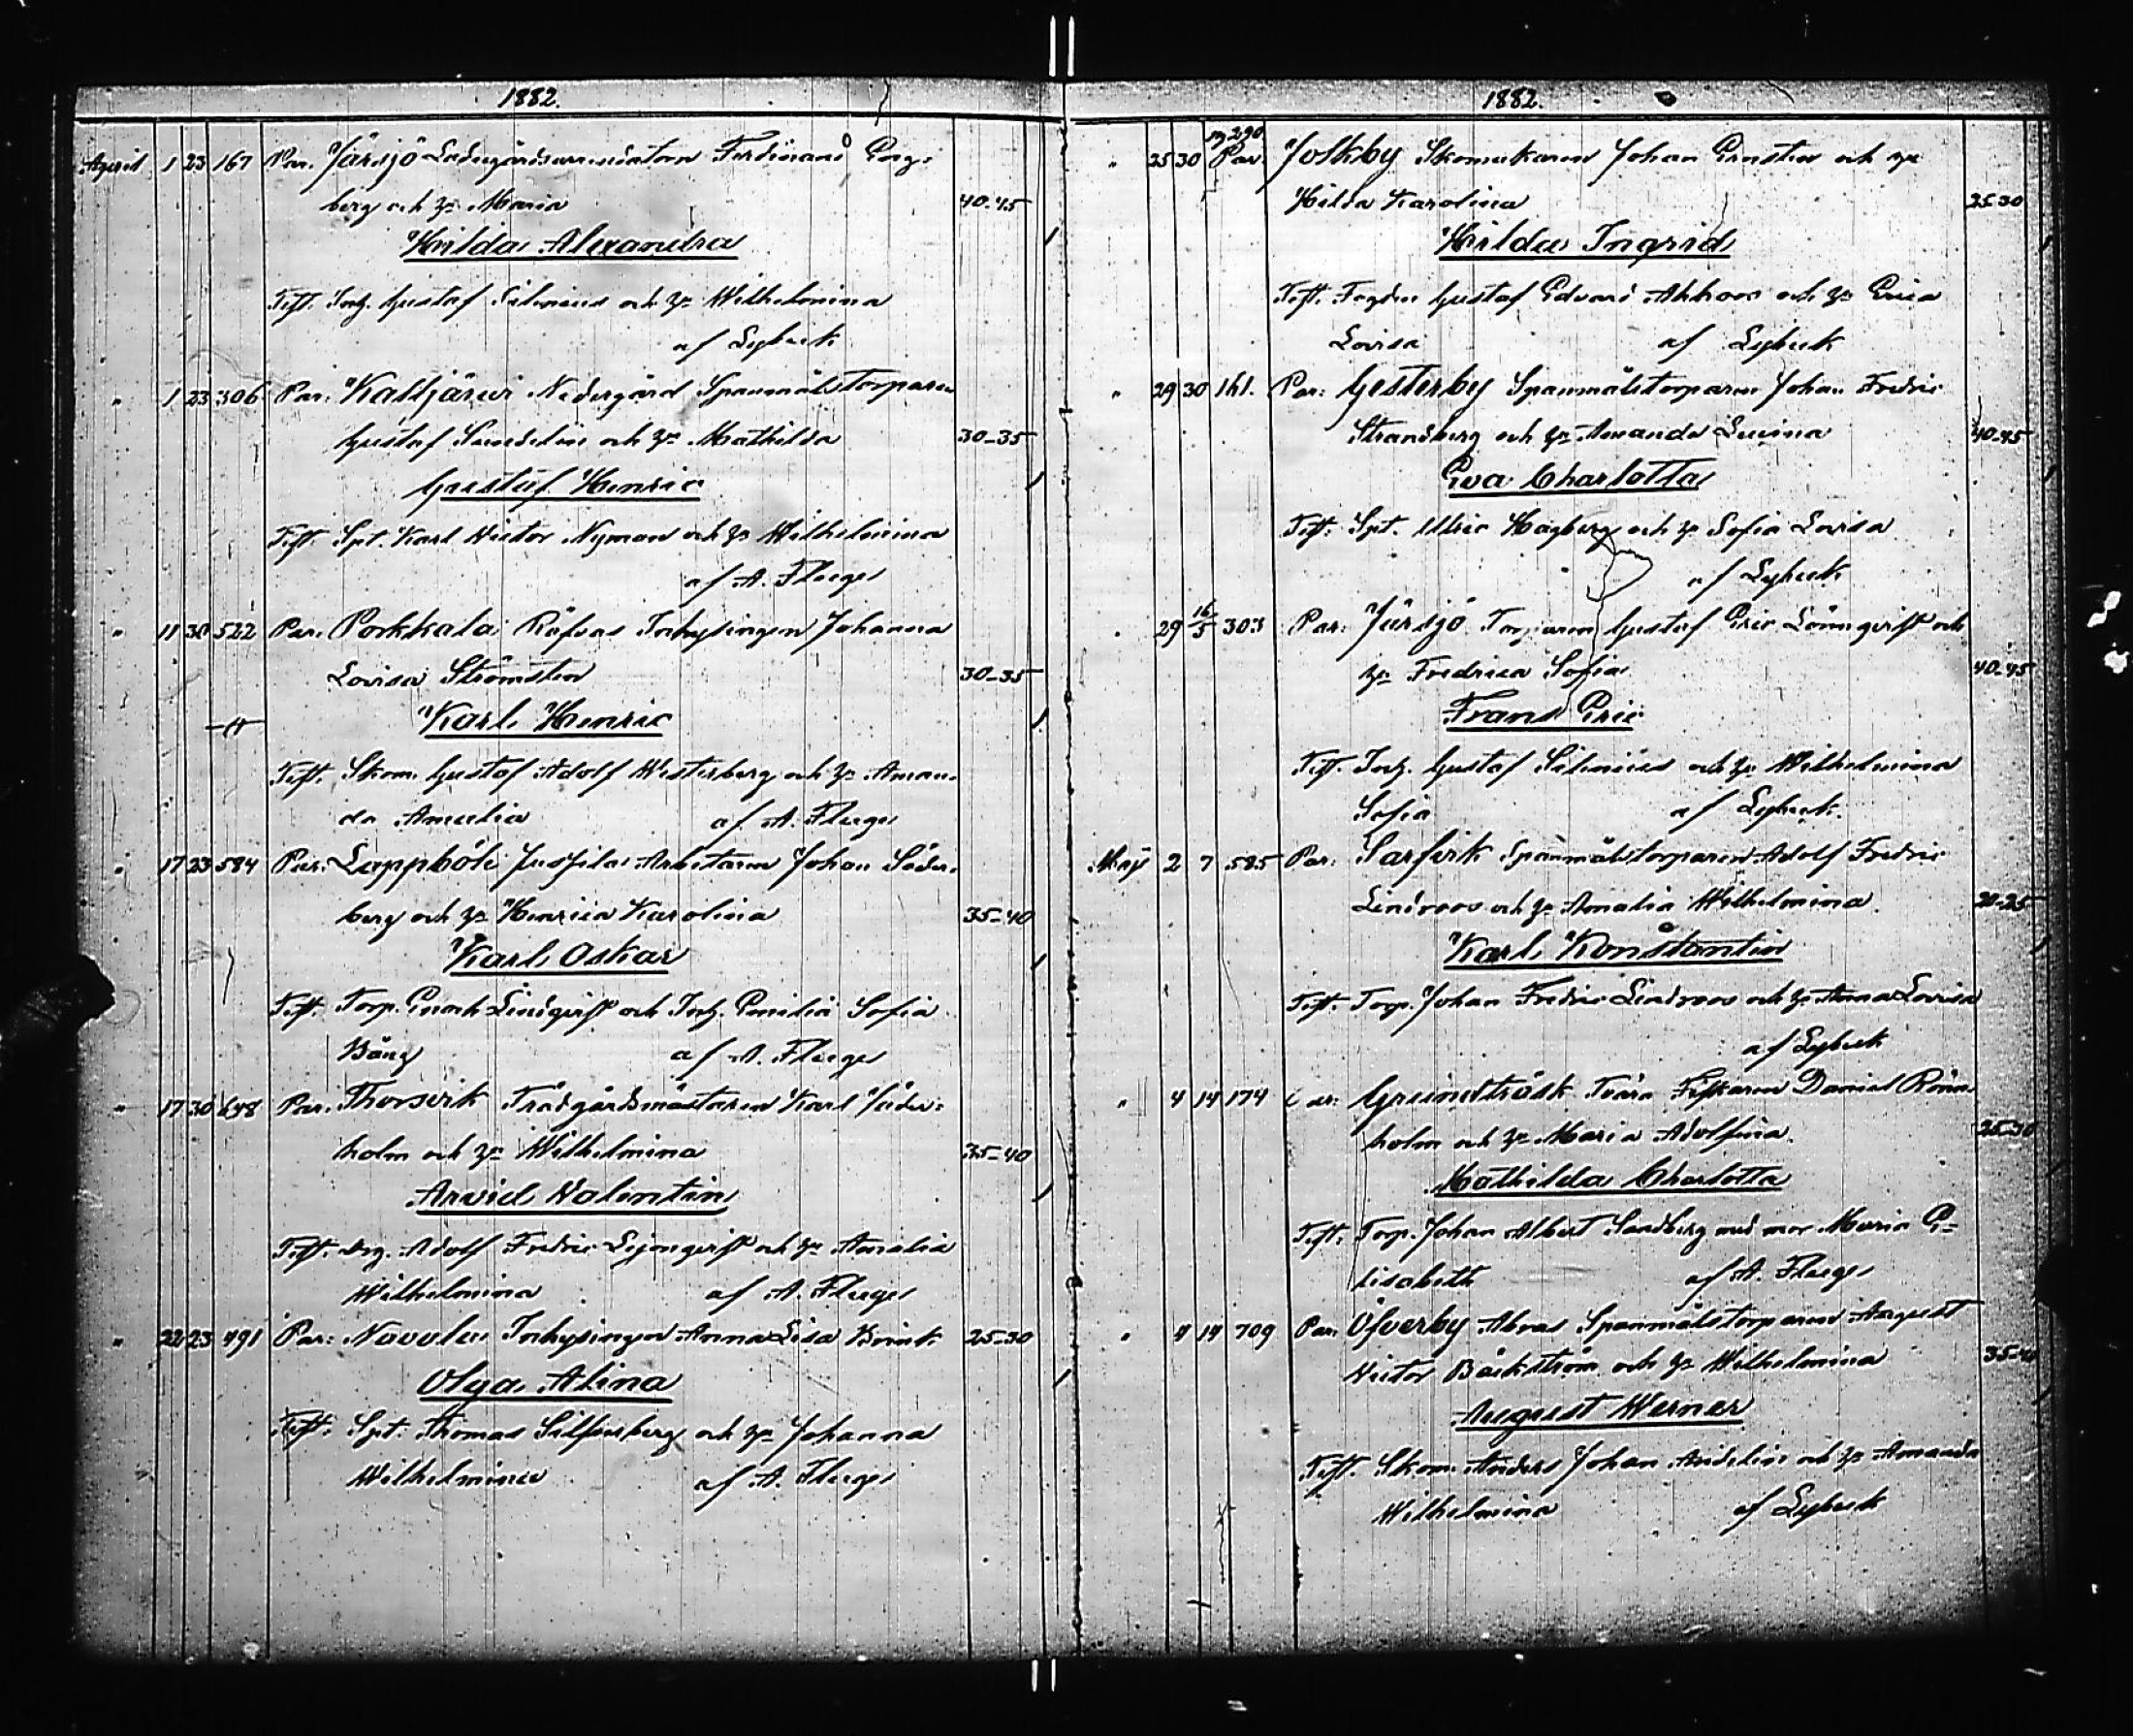 1882.
April 1 23 167 Par. Järsjö Ladugårdsarrendatorn Ferdinand Eng-
berg och h:u Maria 40-45
Hilda Alexandra
Test. Inh. Gustaf Silenius och h:u Wilhelmina
af Lybeck
" 1 23 306 Par: Kaltjärvi Nedergård Spanmålstorparen
Gustaf Sundelin och h:u Mathilda 30-35
Gustaf Henric
Test Spt. Karl Victor Nyman och h:u Wilhelmina
af A. Fluege
" 11 30 522 Par. Porkkala Räfvas Inhysingen Johanna
Lovisa Strömsten 30-35
Karl Henric
Test. Skom. Gustaf Adolf Westerberg och h:u Aman-
da Amalia af A. Fluege
" 17 23 584 Par. Lappböle Jussila Arbetaren Johan Söder-
berg och h:u Henrica Karolina 35-40
Karl Oskar
Test. Torp. Enoch Lindqvist och Inh. Emilia Sofia
Bäng af A. Fluege
" 17 30 648 Par. Thorsvik Trädgårdsmästaren Karl Söder-
holm och h:u Wilhelmina 35-40
Arvid Valentin
Test. Adolf Fredric Lejonqvist och h:u Amalia
Wilhelmina af A. Fluege
" 22 23 491 Par: Navala Inhysingen Anna Lisa Brink 25-30
Olga Alina
Test: Spt: Thomas Silfverberg och h:u Johanna
Wilhelmina af A. Fluege
1882.
" 25 30 290 Par. Jolkby Skomakaren Johan Ernsten och h:u
Hilda Karolina 25-30
Hilda Ingrid
Test. Fogden Gustaf Edvard Ahlroos och h:u Erica
Lovisa af Lybeck
" 29 30 161. Par: Gesterby Spanmålstorparen Johan Fredric
Strandberg och h:u Amanda Lucina 40-45
Eva Charlotta
Test: Spt. Ulric Hagberg och h:u Sofia Lovisa
af Lybeck
" 29 16/5 303 Par: Järsjö Torparen Gustaf Eric Lönnqvist och
h:u Fredrica Sofia 40-45
Frans Eric
Test. Inh. Gustaf Silenius och h:u Wilhelmina
Sofia af Lybeck.
Maj 2 7 585 Par: Sarfvik Spanmålstorparen Adolf Fredric
Lindroos och h:u Amalia Wilhelmina 20-25
Karl Konstantin
Test. Torp. Johan Fredric Lindroos och h:u Anna Lovisa
af Lybeck
" 4 14 174 Par: Grundträsk Tvära Fiskaren Daniel Rönn-
holm och h:u Maria Adolfina. 25-30
Mathilda Charlotta
Test: Torp. Johan Albert Sandberg med mor Maria E-
lisabeth af A. Fluege
" 4 14 709 Par: Öfverby Abras Spanmålstorparen August
Victor Bäckström och h:u Wilhelmina 35-40
August Werner
Test. Skom. Anders Johan Andelin och h:u Amanda
Wilhelmina af Lybeck